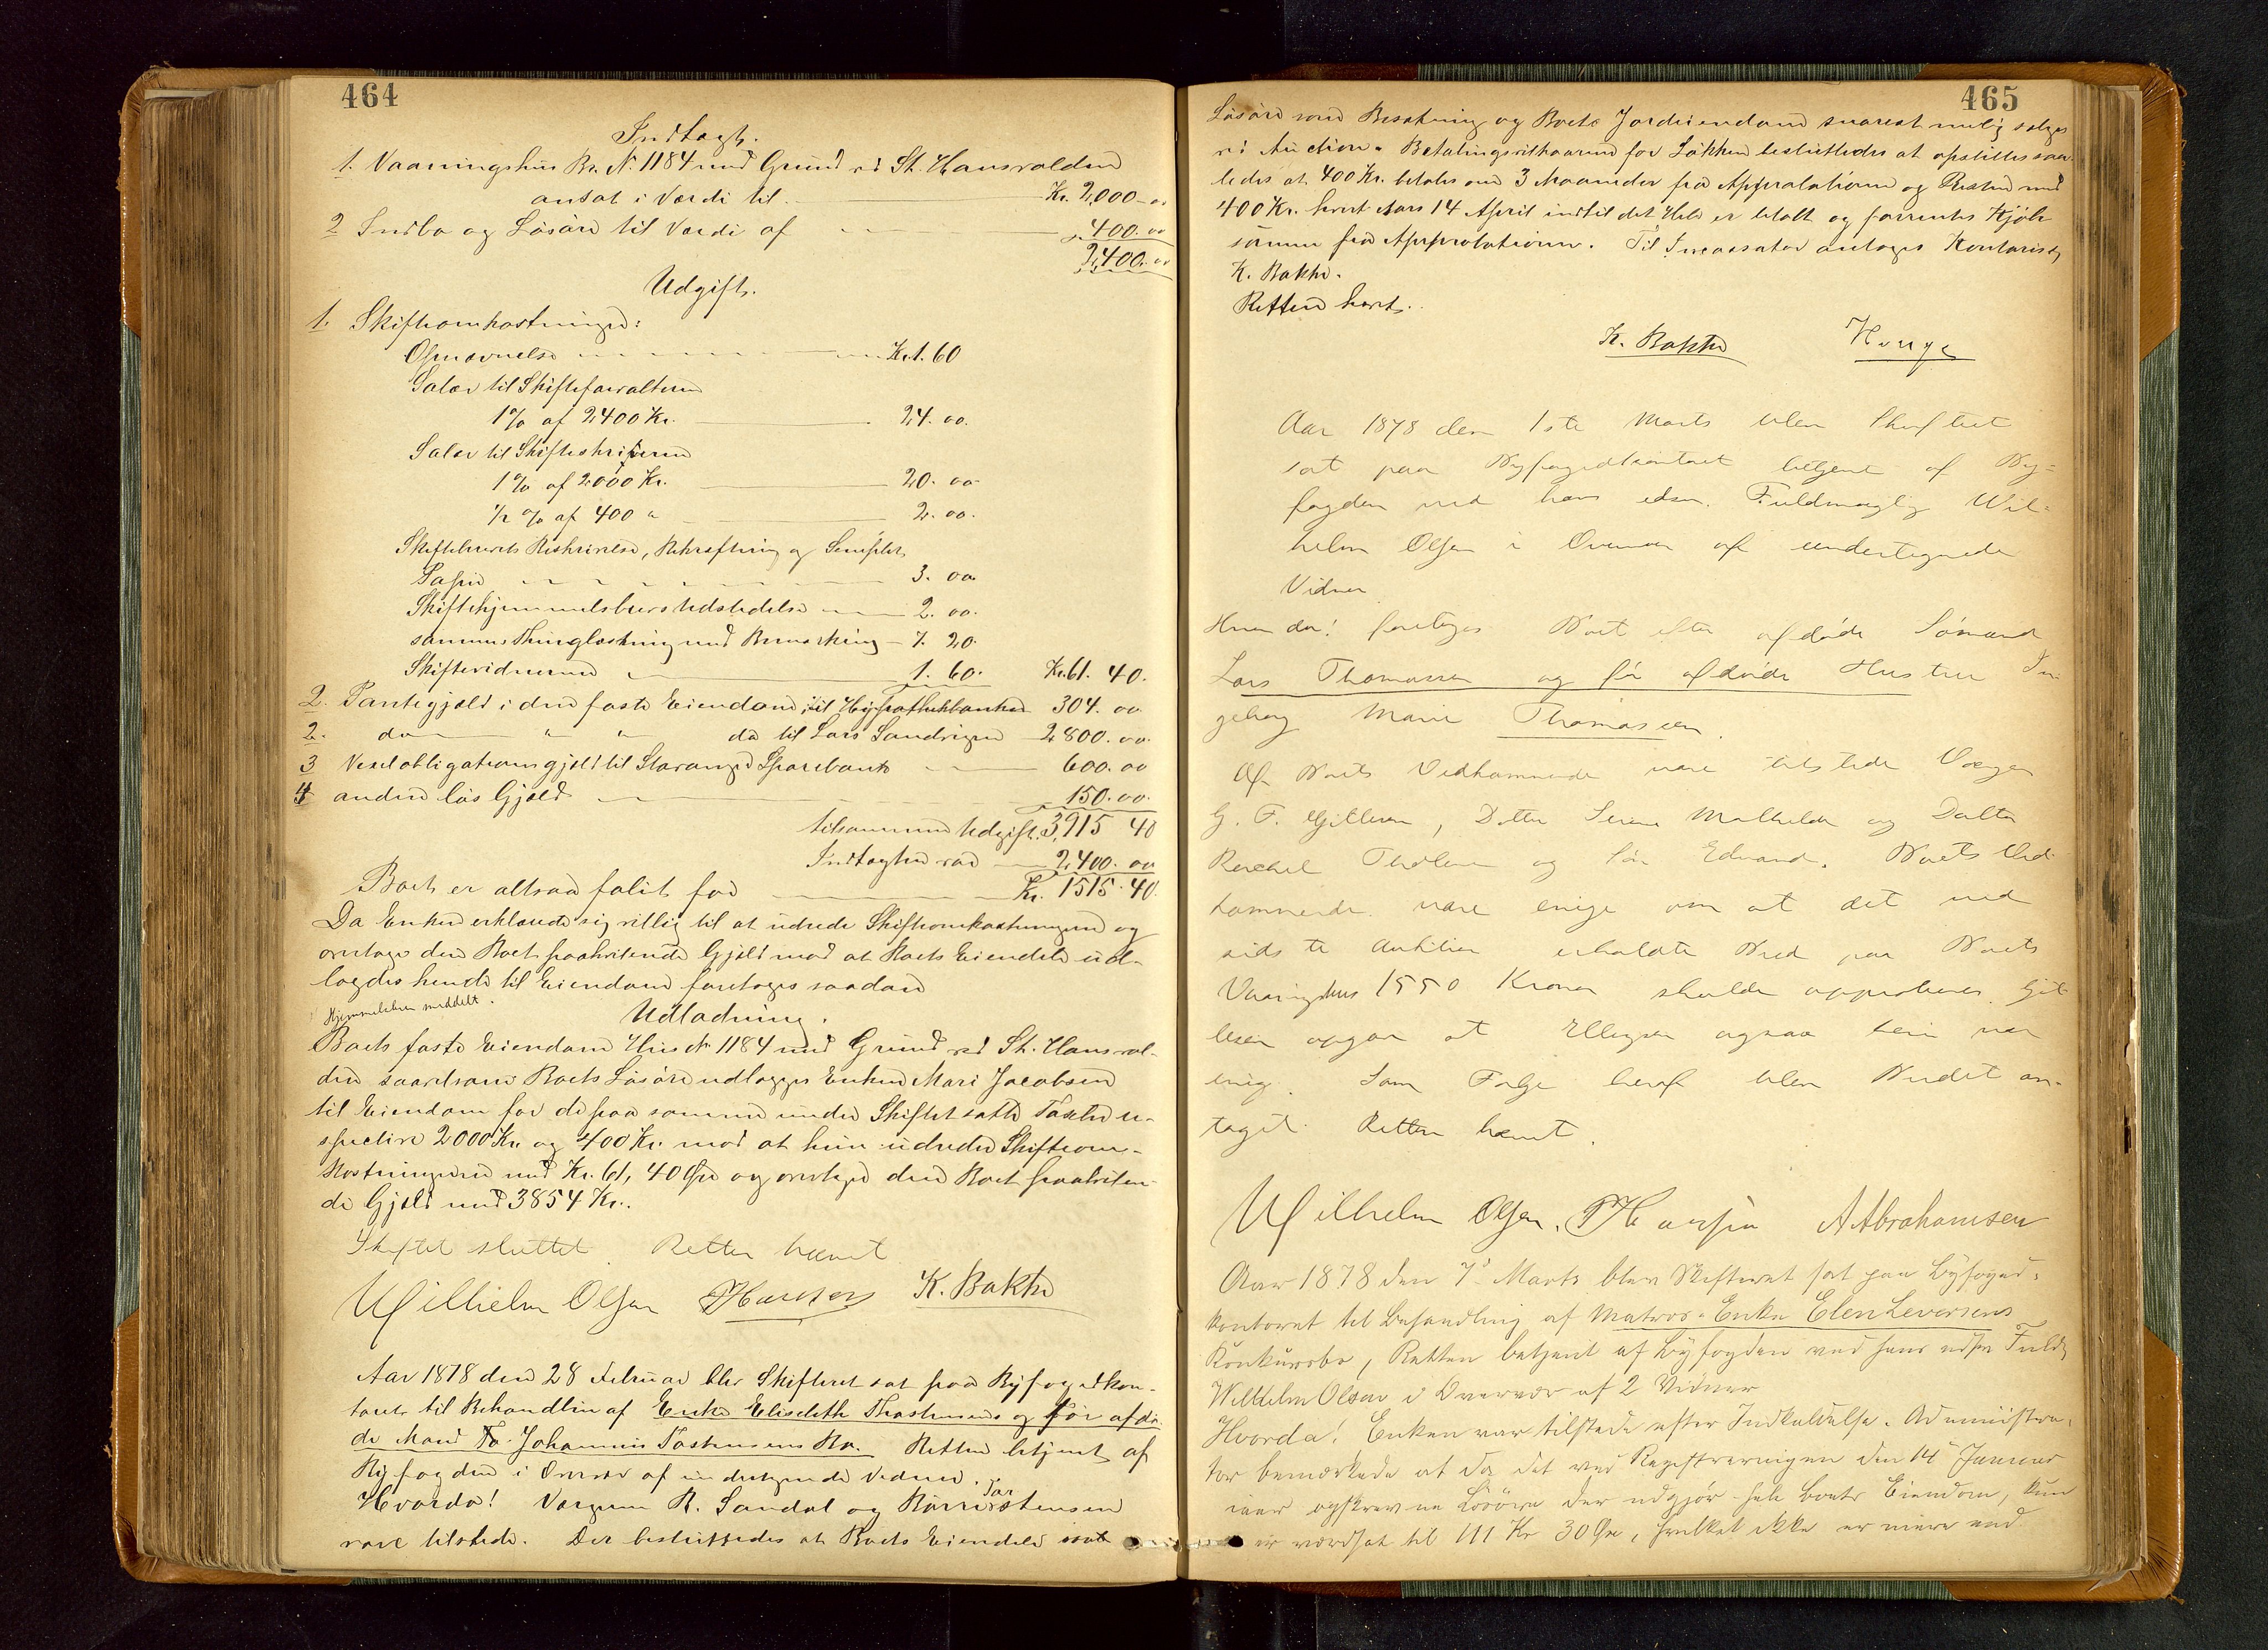 464
Indtægt.
1. Vaaningshus Br. N. 1184 med Grund ved St. Hansvolden
ansat i Værdi til Kr. 2,000 - 00
2 Indbo og Løsøre til Værdi af 400. 00
2,400. 00
Udgift.
1. Skifteomkostninger:
Opnævnelse Kr. 1. 60
Salær til Skifteforvalteren
1 % af 2400 Kr. 24. 00.
Salær til Skifteskriveren
1 % af 2000 Kr. 20. 00
1/2 % af 400 " 2. 00.
Skiftebrevets Beskrivelse, Bekræftning og Stemplet
Papir 3. 00
Skiftehjemmelsbrevs Udstedelse 2. 00.
sammes Thinglæsning med Bemærkning - 7. 20.
Skiftevidnerne 1. 60. Kr. 61. 40.
2. Pantegjæld i den faste Eiendom til Hypothekbanken 304. 00
2. do " " do til Lars Sandvigen 2800. 00.
3 Vexelobligationsgjæld til Stavanger Sparebank 600. 00
4 anden løs Gjæld 150. 00.
tilsammen Udgift. 3,915 40
Indtægten var 2,400. 00
Boet er altsaa falit for Kr. 1515. 40.
Da Enken erklærede sig villig til at udrede Skifteomkostningerne og
overtage den Boet paahvilende Gjæld mod at Boets Eiendele ud-
lagdes hende til Eiendom foretoges saadan
Hjemmelsbrev meddelt.
Udlodning.
Boets faste Eiendom Hus N 1184 med Grund ved St. Hansvol-
den saavelsom Boets Løsøre udlægges Enken Mari Jacobsen
til Eiendom for de paa samme under Skiftet satte Taxter re-
spective 2000 Kr. og 400 Kr. mod at hun udreder Skifteom-
kostningerne med Kr. 61, 40 Øre og overtager den Boet paahvilen-
de Gjæld med 3854 Kr.
Skiftet sluttet. Retten hævet
Wilhelm Olsen K. Bakke
Aar 1878 den 28 Februar blev Skifteret sat paa Byfogedkon-
toret til Behandlin af Enke Elisebeth Thostensens og før afdø-
de Mand Johannes Tostensens Bo. Retten betjent af
Byfogden i Overvær af undertegnede Vidner.
Hvorda! Værgerne R. Sandal og Børre Torstensen
vare tilstede. Der besluttedes at Boets Eiendele saavel
465
Løsøre som Besætning og Boets Jordeiendom snarest mulig sælges
ved Auction. Betalingsvilkaarene for Løkken besluttedes at opstilles saa-
ledes at 400 Kr. betales om 3 Maaneder fra Approbationen og Resten med
400 Kr. hvert Aars 14 April indtil det Hele er betalt og forrentes Kjøbe-
summen fra Approbationen. Til Incassator antoges Kontorist
K. Bakke.
Retten hævet.
K. Bakke Hauge
Aar 1878 den 1ste Marts blev Skifteret
sat paa Byfogedkontoret betjent af By-
fogden ved hans edsv. Fuldmægtig Wil-
helm Olsen i Overvær af undertegnede
Vidner
Hvorda! foretoges Boet efter afdøde Sømand
Lars Thomassen og før afdøde Hustru In-
geborg Marie Thomassen.
Af Boets Vedkommende vare tilstede Værgen
G. F. Gillesen, Datter Serine Mathilde og Datter
Rachel Thoresen og Søn Edvard. Boets Ved-
kommende vare enige om at det ved
sidste Auktion erholdte Bud paa Boets
Vaaningshus 1550 Kroner skulde approberes. Gil-
lesen opgav at Ellingsen ogsaa heri var
enig. Som Følge heraf blev Budet an-
taget. Retten hævet.
Wilhelm Olsen. A Abrahamsen
Aar 1878 den 7de Marts blev Skifteret sat paa Byfoged-
kontoret til Behandling af Matros-Enke Elen Levorsens
Konkursbo, Retten betjent af Byfogden ved hans edsv Fuldm
Wilhelm Olsen i Overvær af 2 Vidner
Hvorda! Enken var tilstede efter Indkaldelse. Administra-
tor bemærkede at da det ved Registreringen den 14 Januar
iaar opskrevne Løsøre der udgjør hele Boets Eiendom, kun
er værdsat til 111 Kr 30 Øre, hvilket ikke er mere end